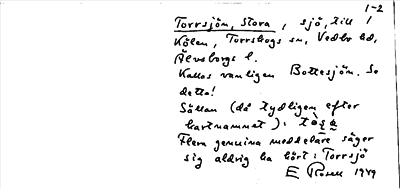 1-2
Torrsjön, Stora, sjö, till 1
Kölen, Torrskogs sn, Vedbo hd,
Älvsborgs l.
Kallas vanligen Bottesjön. Se
detta!
Sällan (då tydligen efter
kartnamnet):
Flera genuina meddelare säger
sig aldrig ha hört: Torrsjö
E Rosell 1949